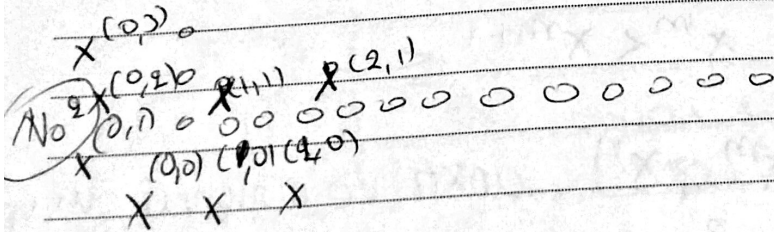 x (0,3) o
x (0,2) o x (1,1) x (2,1)
No² (0,1) o o o o o o o o o o o o o
x (0,0) (1,0) (2,0)
x x x